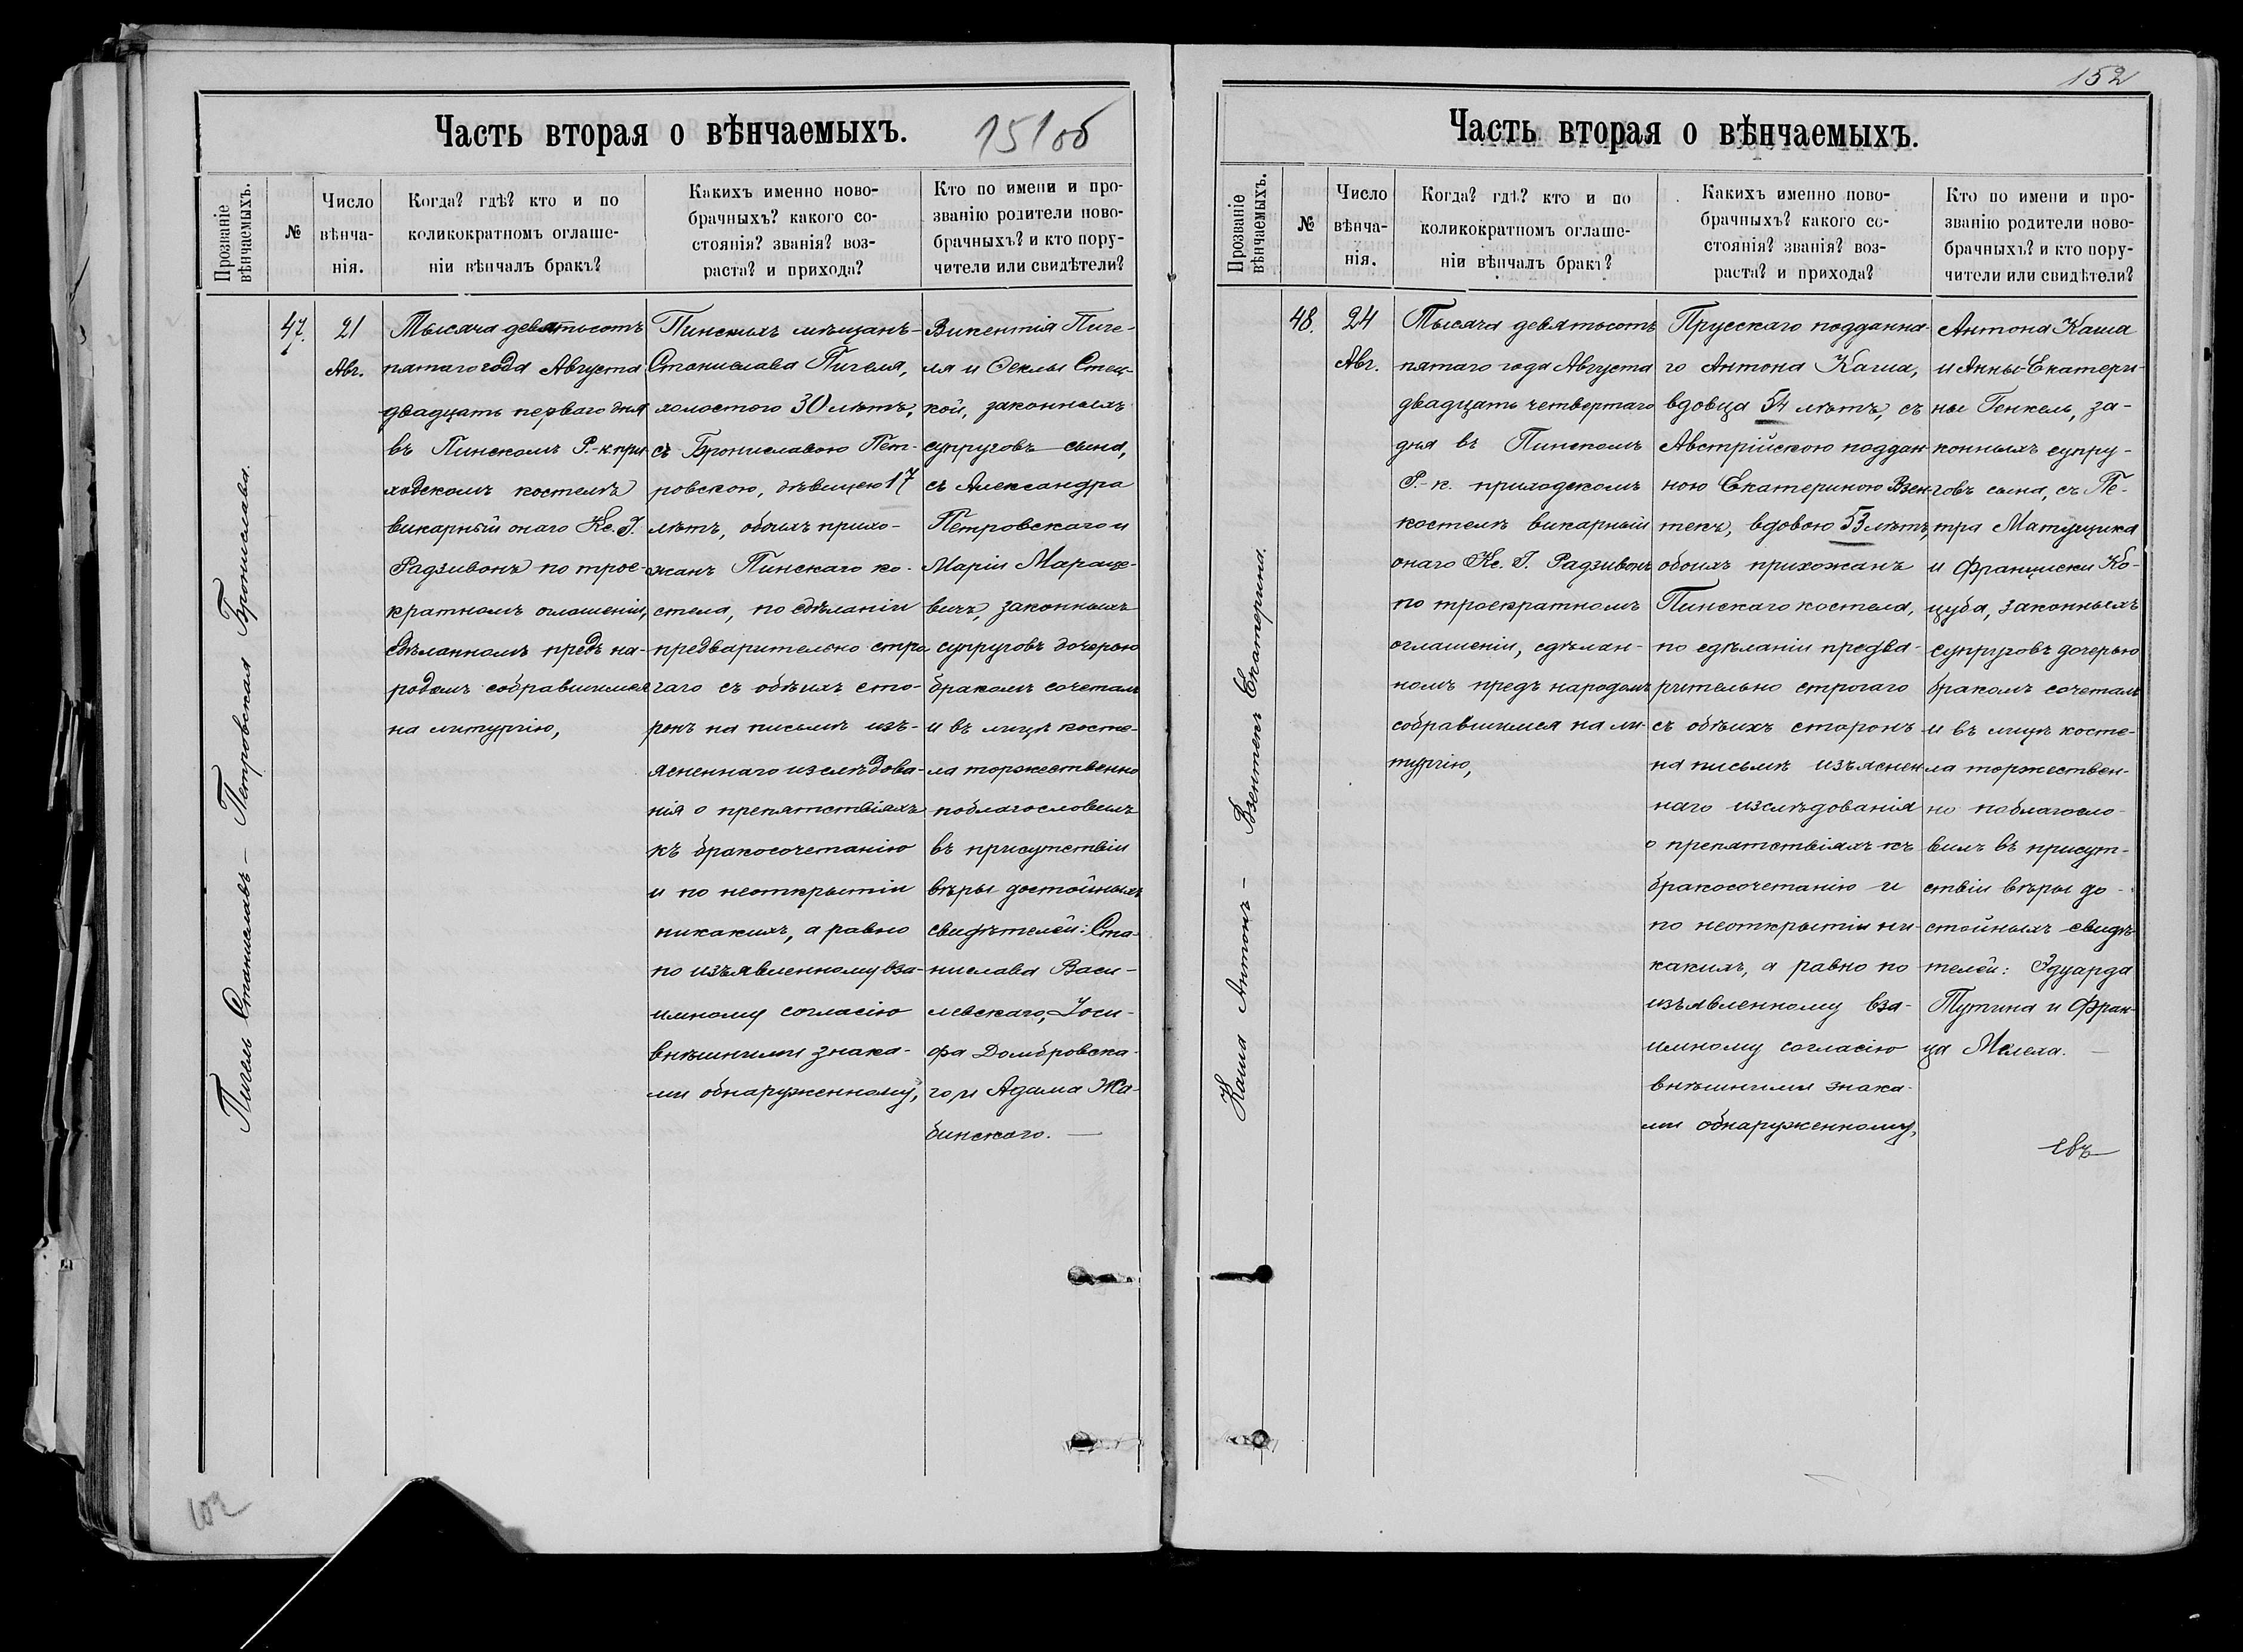 Часть вторая о вѣнчаемыхъ.
151об
Прозваніе
вѣнчаемыхъ.
№
Число
вѣнча-
нія.
Когда? гдѣ? кто и по
коликократномъ оглаше-
ніи вѣнчалъ бракъ?
Какихъ именно ново-
брачныхъ? какого со-
стоянія? званія? воз-
раста? и прихода?
Кто по имени и про-
званію родители ново-
брачныхъ? и кто пору-
чители или свидѣтели?
Пигель Станиславъ – Петровская Бронислава.
47.
21
Авг.
Тысяча девятьсотъ
пятаго года Августа
двадцать перваго дня
въ Пинскомъ Р.-к. при
ходскомъ костелѣ
викарный онаго Кс. І.
Радзивонъ по трое-
кратномъ оглашеніи,
сдѣланномъ предъ на-
родомъ собравшимся
на литургію,
Пинскихъ мѣщанъ-
Станислава Пигеля,
холостого 30 лѣтъ,
съ Брониславою Пет-
ровскою, дѣвицею 17
лѣтъ, обоихъ прихо-
жанъ Пинскаго ко-
стела, по сдѣланіи
предварительно стро
гаго съ обѣихъ сто-
ронъ на письмѣ изъ-
ясненнаго изслѣдова-
нія о препятствіяхъ
къ бракосочетанію
и по неоткрытіи
никакихъ, а равно
по изъявленному вза-
имному согласію
внѣшними знака-
ми обнаруженному,
Викентія Пиге-
ля и Ѳеклы Стец-
кой, законныхъ
супруговъ сына,
съ Александра
Петровскаго и
Маріи Мараще-
вичъ, законныхъ
супруговъ дочерью
бракомъ сочеталъ
и въ лицѣ косте-
ла торжественно
поблагословилъ
въ присутствіи
вѣры достойныхъ
свидѣтелей: Ста-
нислава Васи-
левскаго, Іоси-
фа Домбровска-
го и Адама Жа-
бинскаго.
102
152
Часть вторая о вѣнчаемыхъ.
Прозваніе
вѣнчаемыхъ.
№
Число
вѣнча-
нія.
Когда? гдѣ? кто и по
коликократномъ оглаше-
ніи вѣнчалъ бракъ?
Какихъ именно ново-
брачныхъ? какого со-
стоянія? званія? воз-
раста? и прихода?
Кто по имени и про-
званію родители ново-
брачныхъ? и кто пору-
чители или свидѣтели?
Каша Антонъ – Взентекъ Екатерина.
48.
24
Авг.
Тысяча девятьсотъ
пятаго года Августа
двадцать четвертаго
дня въ Пинскомъ
Р.-к. приходскомъ
костелѣ викарный
онаго Кс. І. Радзивонъ
по троекратномъ
оглашеніи, сдѣлан-
номъ предъ народомъ
собравшимся на ли-
тургію,
Прусскаго подданна-
го Антона Каша,
вдовца 54 лѣтъ, съ
Австрійскою поддан-
ною Екатериною Взен-
текъ, вдовою 53 лѣтъ,
обоихъ прихожанъ
Пинскаго костела,
по сдѣланіи предва-
рительно строгаго
съ обѣихъ сторонъ
на письмѣ изъяснен
наго изслѣдованія
о препятствіяхъ къ
бракосочетанію и
по неоткрытіи ни-
какихъ, а равно по
изъявленному вза-
имному согласію
внѣшними знака-
ми обнаруженному,
Антона Каша
и Анны-Екатери-
ны Генкель, за-
конныхъ супру-
говъ сына, съ Пе-
тра Матущика
и Франциски Ко-
цуба, законныхъ
супруговъ дочерью
бракомъ сочеталъ
и въ лицѣ косте-
ла торжествен-
но поблагосло-
вилъ въ присут-
ствіи вѣры до-
стойныхъ свидѣ-
телей: Эдуарда
Тутина и Фран-
ца Мелеха.